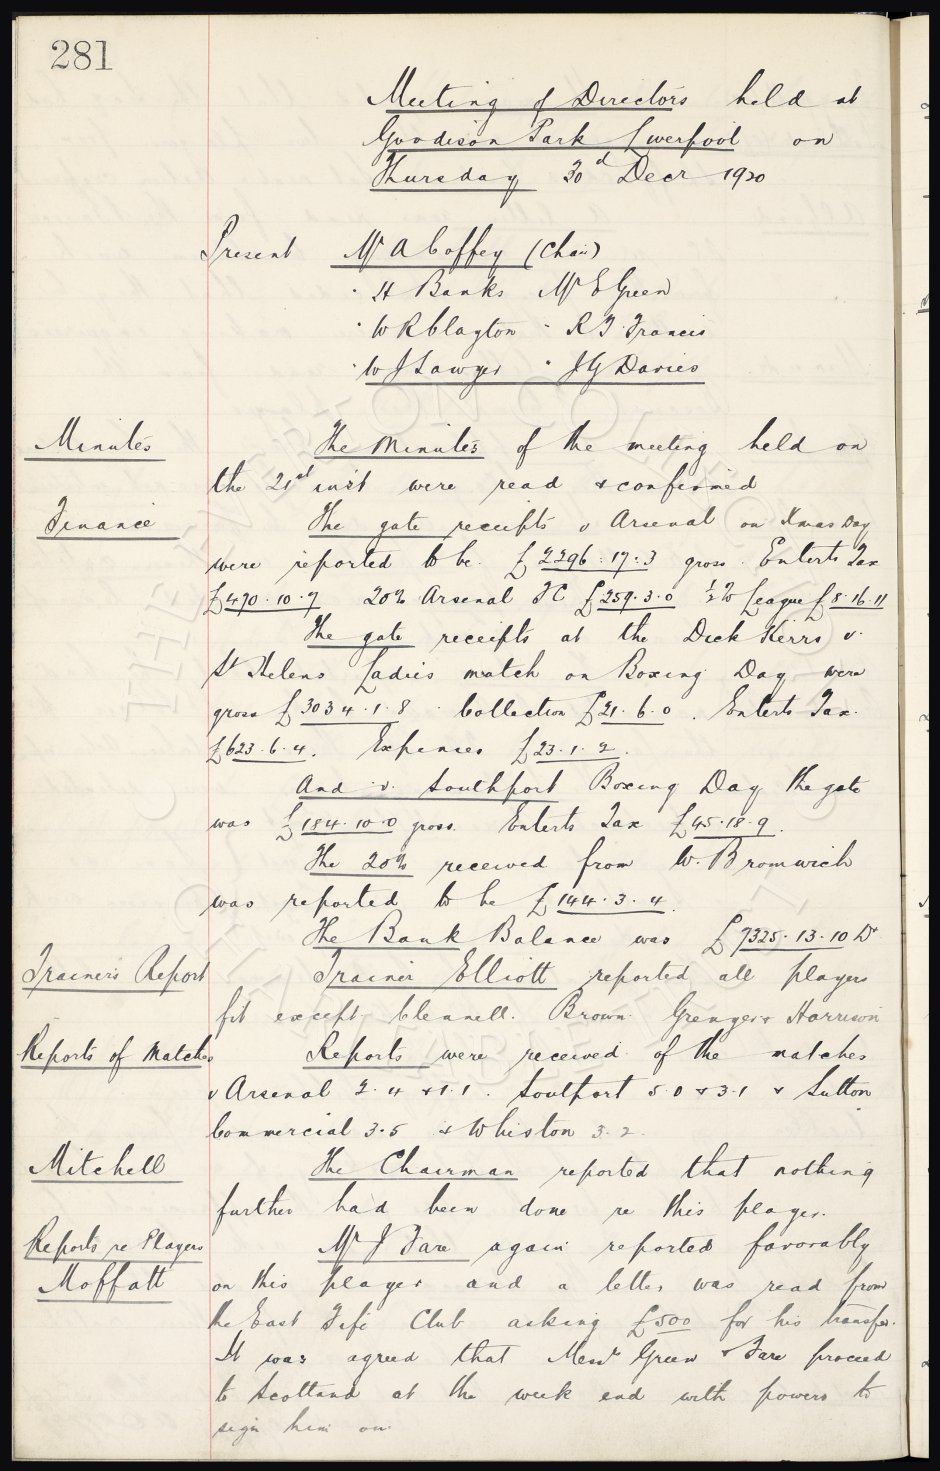 281
Meeting of Directors held at
Goodison Park Liverpool on
Thursday 30d Decr 1920
Present Mr A Coffey (Chair)
" H Banks Mr E Green
" W R Clayton " R T Francis
" W J Sawyer " J G Davies
Minutes The Minutes of the meeting held on
the 21st inst were read & confirmed
Finance The gate receipts v Arsenal on Xmas Day
were reported to be £2296.17.3 gross. Enterts Tax
£470.10.7 20% Arsenal FC £259.3.0 ½% League £8.16.11
The gate receipts at the Dick Kerrs v.
St Helens Ladies match on Boxing Day were
gross £3034.1.8. Collection £21.6.0. Enterts Tax.
£623.6.4. Expenses £23.1.2.
And v. Southport Boxing Day the gate
was £184.10.0 gross. Enterts Tax £45.18.9.
The 20% received from W. Bromwich
was reported to be £144.3.4.
The Bank Balance was £7325.13.10 Dr
Trainer's Report Trainer Elliott reported all players
fit except Clennell. Brown. Grenyer & Harrison
Reports of Matches Reports were received of the matches
v Arsenal 2.4 & 1.1. Southport 5.0 & 3.1 & Sutton
Commercial 3.5 & Whiston 3.2.
Mitchell The Chairman reported that nothing
further had been done re this player.
Reports re Players Mr J Fare again reported favorably
Moffatt on this player and a letter was read from
the East Fife Club asking £500 for his transfer.
It was agreed that Messrs Green & Fare proceed
to Scotland at the week end with powers to
sign him on.